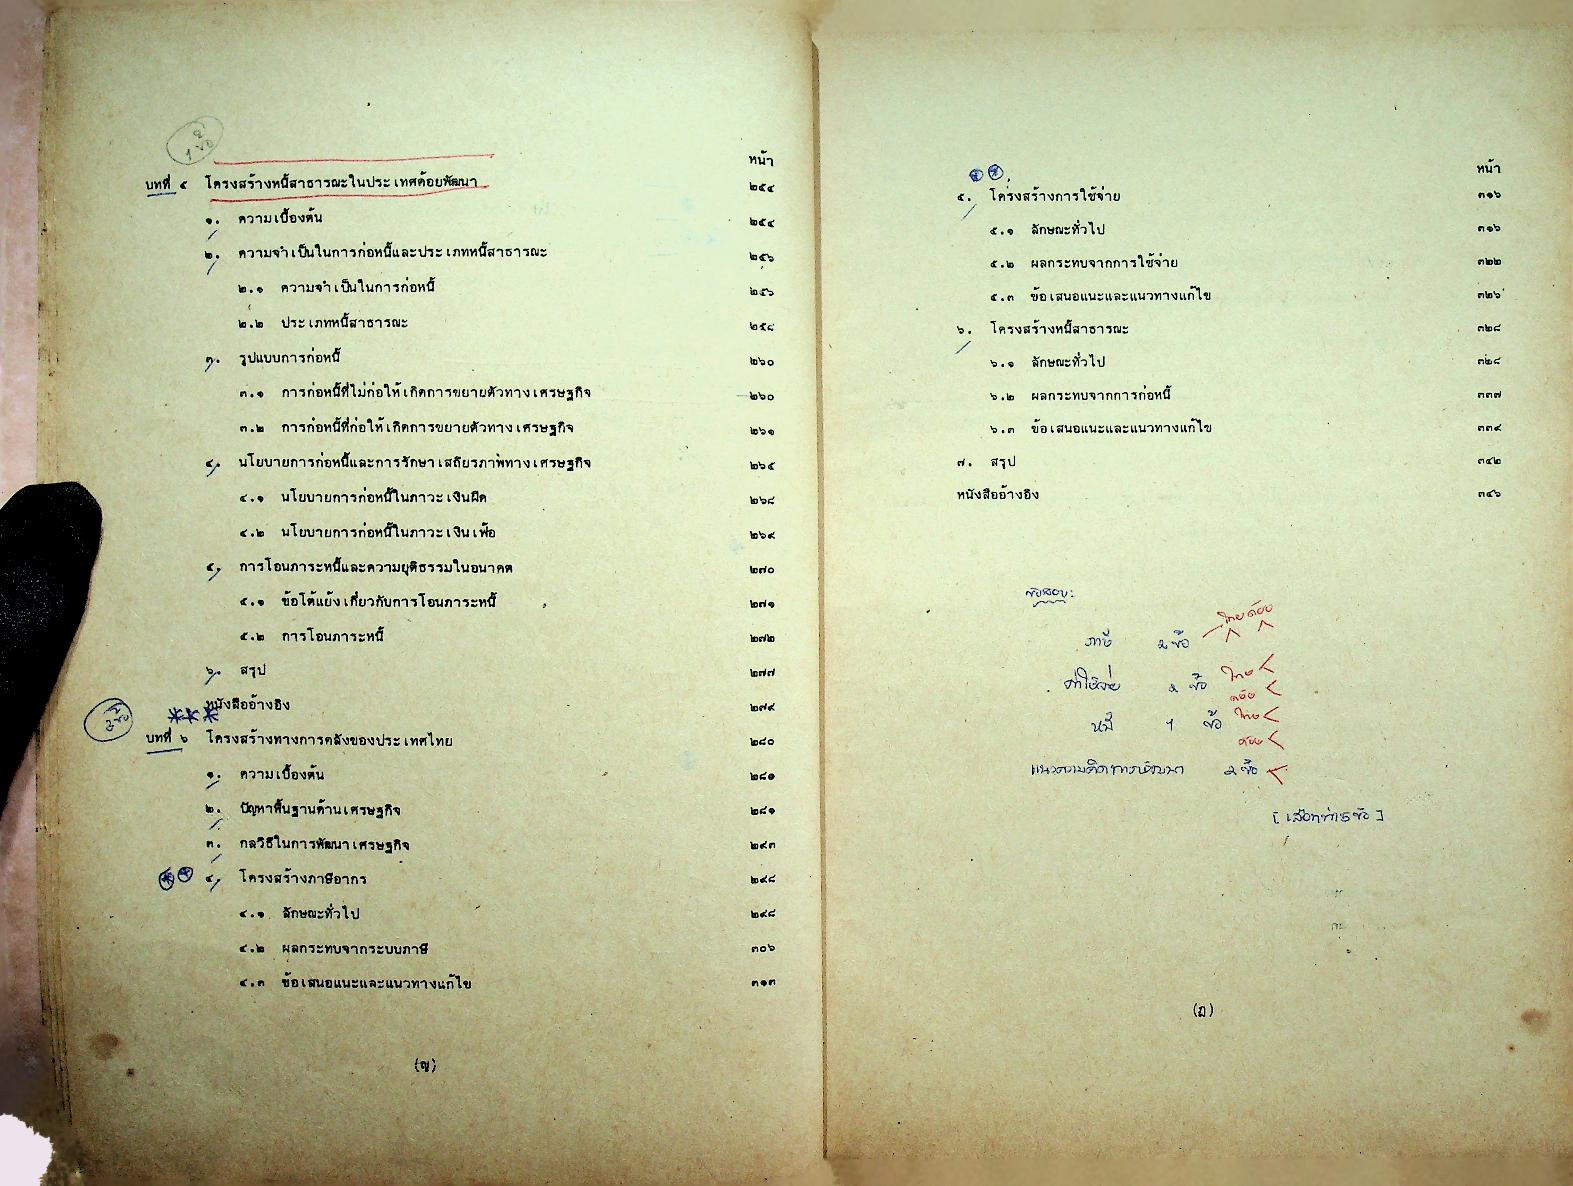 หน้า
บทที่ ๕ โครงสร้างหนี้สาธารณะในประเทศด้อยพัฒนา ๒๕๔
๑. ความเบื้องต้น ๒๕๔
๒. ความจำเป็นในการก่อหนี้และประเภทหนี้สาธารณะ ๒๕๖
๒.๑ ความจำเป็นในการก่อหนี้ ๒๕๖
๒.๒ ประเภทหนี้สาธารณะ ๒๕๘
๓. รูปแบบการก่อหนี้ ๒๖๐
๓.๑ การก่อหนี้ที่ไม่ก่อให้เกิดการขยายตัวทางเศรษฐกิจ ๒๖๐
๓.๒ การก่อหนี้ที่ก่อให้เกิดการขยายตัวทางเศรษฐกิจ ๒๖๑
๔. นโยบายการก่อหนี้และการรักษาเสถียรภาพทางเศรษฐกิจ ๒๖๕
๔.๑ นโยบายการก่อหนี้ในภาวะเงินฝืด ๒๖๘
๔.๒ นโยบายการก่อหนี้ในภาวะเงินเฟ้อ ๒๖๙
๕. การโอนภาระหนี้และความยุติธรรมในอนาคต ๒๗๐
๕.๑ ข้อโต้แย้งเกี่ยวกับการโอนภาระหนี้ ๒๗๑
๕.๒ การโอนภาระหนี้ ๒๗๒
๖. สรุป ๒๗๗
หนังสืออ้างอิง ๒๗๙
บทที่ ๖ โครงสร้างทางการคลังของประเทศไทย ๒๘๐
๑. ความเบื้องต้น ๒๘๑
๒. ปัญหาพื้นฐานด้านเศรษฐกิจ ๒๘๑
๓. กลวิธีในการพัฒนาเศรษฐกิจ ๒๙๓
๔. โครงสร้างภาษีอากร ๒๙๘
๔.๑ ลักษณะทั่วไป ๒๙๘
๔.๒ ผลกระทบจากระบบภาษี ๓๐๖
๔.๓ ข้อเสนอแนะและแนวทางแก้ไข ๓๑๓
(ญ)
หน้า
๕. โครงสร้างการใช้จ่าย ๓๑๖
๕.๑ ลักษณะทั่วไป ๓๑๖
๕.๒ ผลกระทบจากการใช้จ่าย ๓๒๒
๕.๓ ข้อเสนอแนะและแนวทางแก้ไข ๓๒๖
๖. โครงสร้างหนี้สาธารณะ ๓๒๘
๖.๑ ลักษณะทั่วไป ๓๒๘
๖.๒ ผลกระทบจากการก่อหนี้ ๓๓๗
๖.๓ ข้อเสนอแนะและแนวทางแก้ไข ๓๓๙
๗. สรุป ๓๔๒
หนังสืออ้างอิง ๓๔๖
ข้อสอบ:
ภาษี ๒ ข้อ ไทย ด้อย
ค่าใช้จ่าย ๒ ข้อ ไทย
ด้อย
หนี้ 1 ข้อ ไทย
ด้อย
แนวความคิดการพัฒนา ๒ ข้อ
(ฎ)